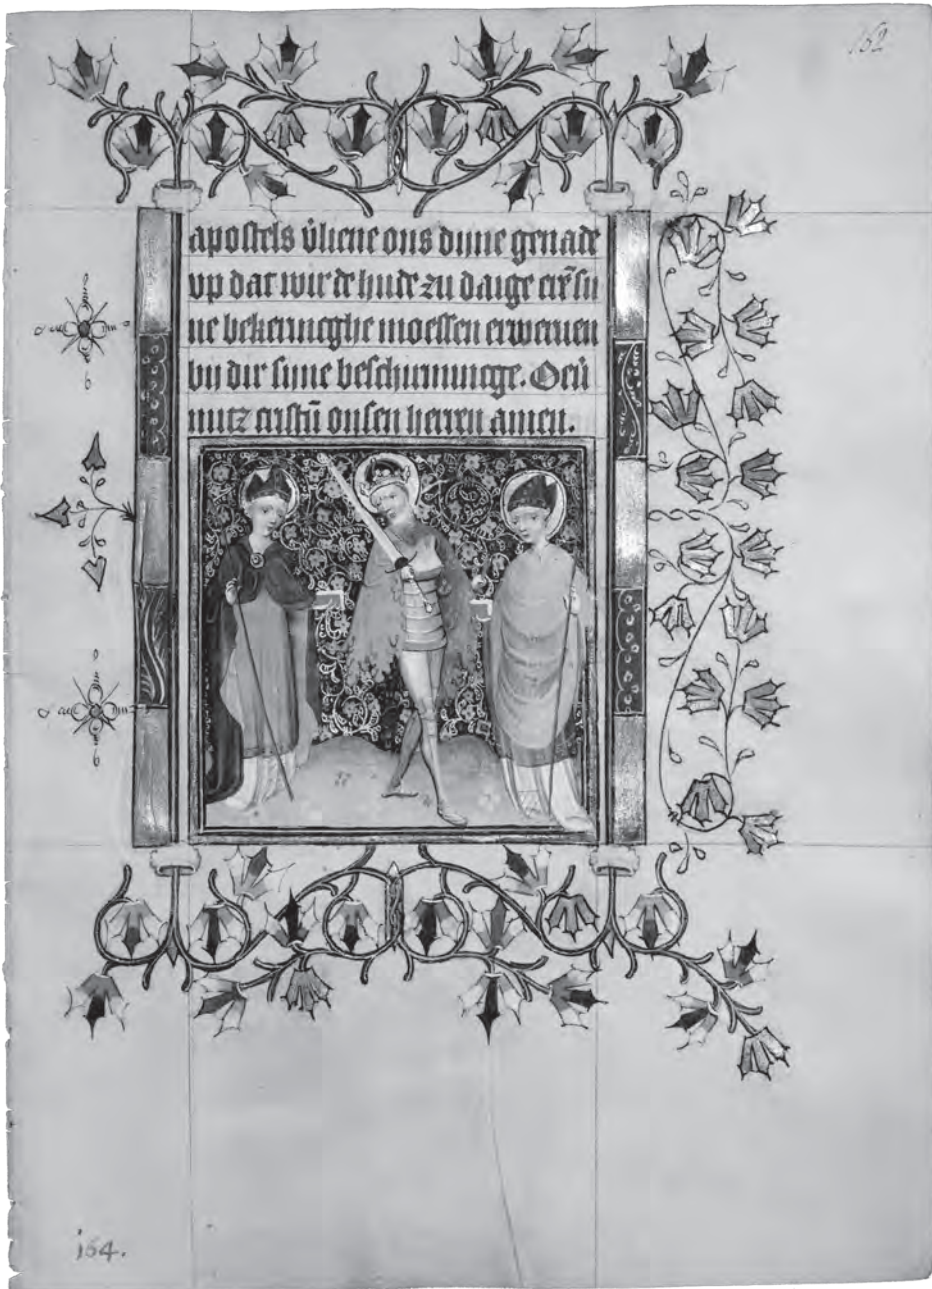 162
apostels v̄liene ons dyne genade
vp dat wir de hude zu daige sy
ne bekeringhe moessen erweruen
by dir syne beschirmincge.
mitz cristū onsen herren amen.
164.